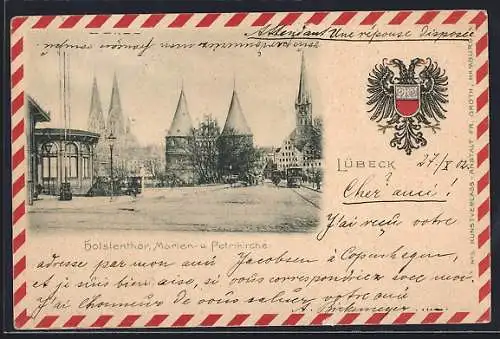 Attendant Une réponse disposée
LÜBECK
27/X 02.
Cher ami!
J'ai reçu votre
Holstenthor, Marien- u. Petrikirche.
adresse par mon ami Jacobsen à Copenhagen,
et je suis bien aise, si vous correspondriez avec moi.
J'ai l'honneur de vous saluer votre ami
A. Birkemeyer
KUNSTVERLAGS-ANSTALT FR. GROTH, HAMBURG